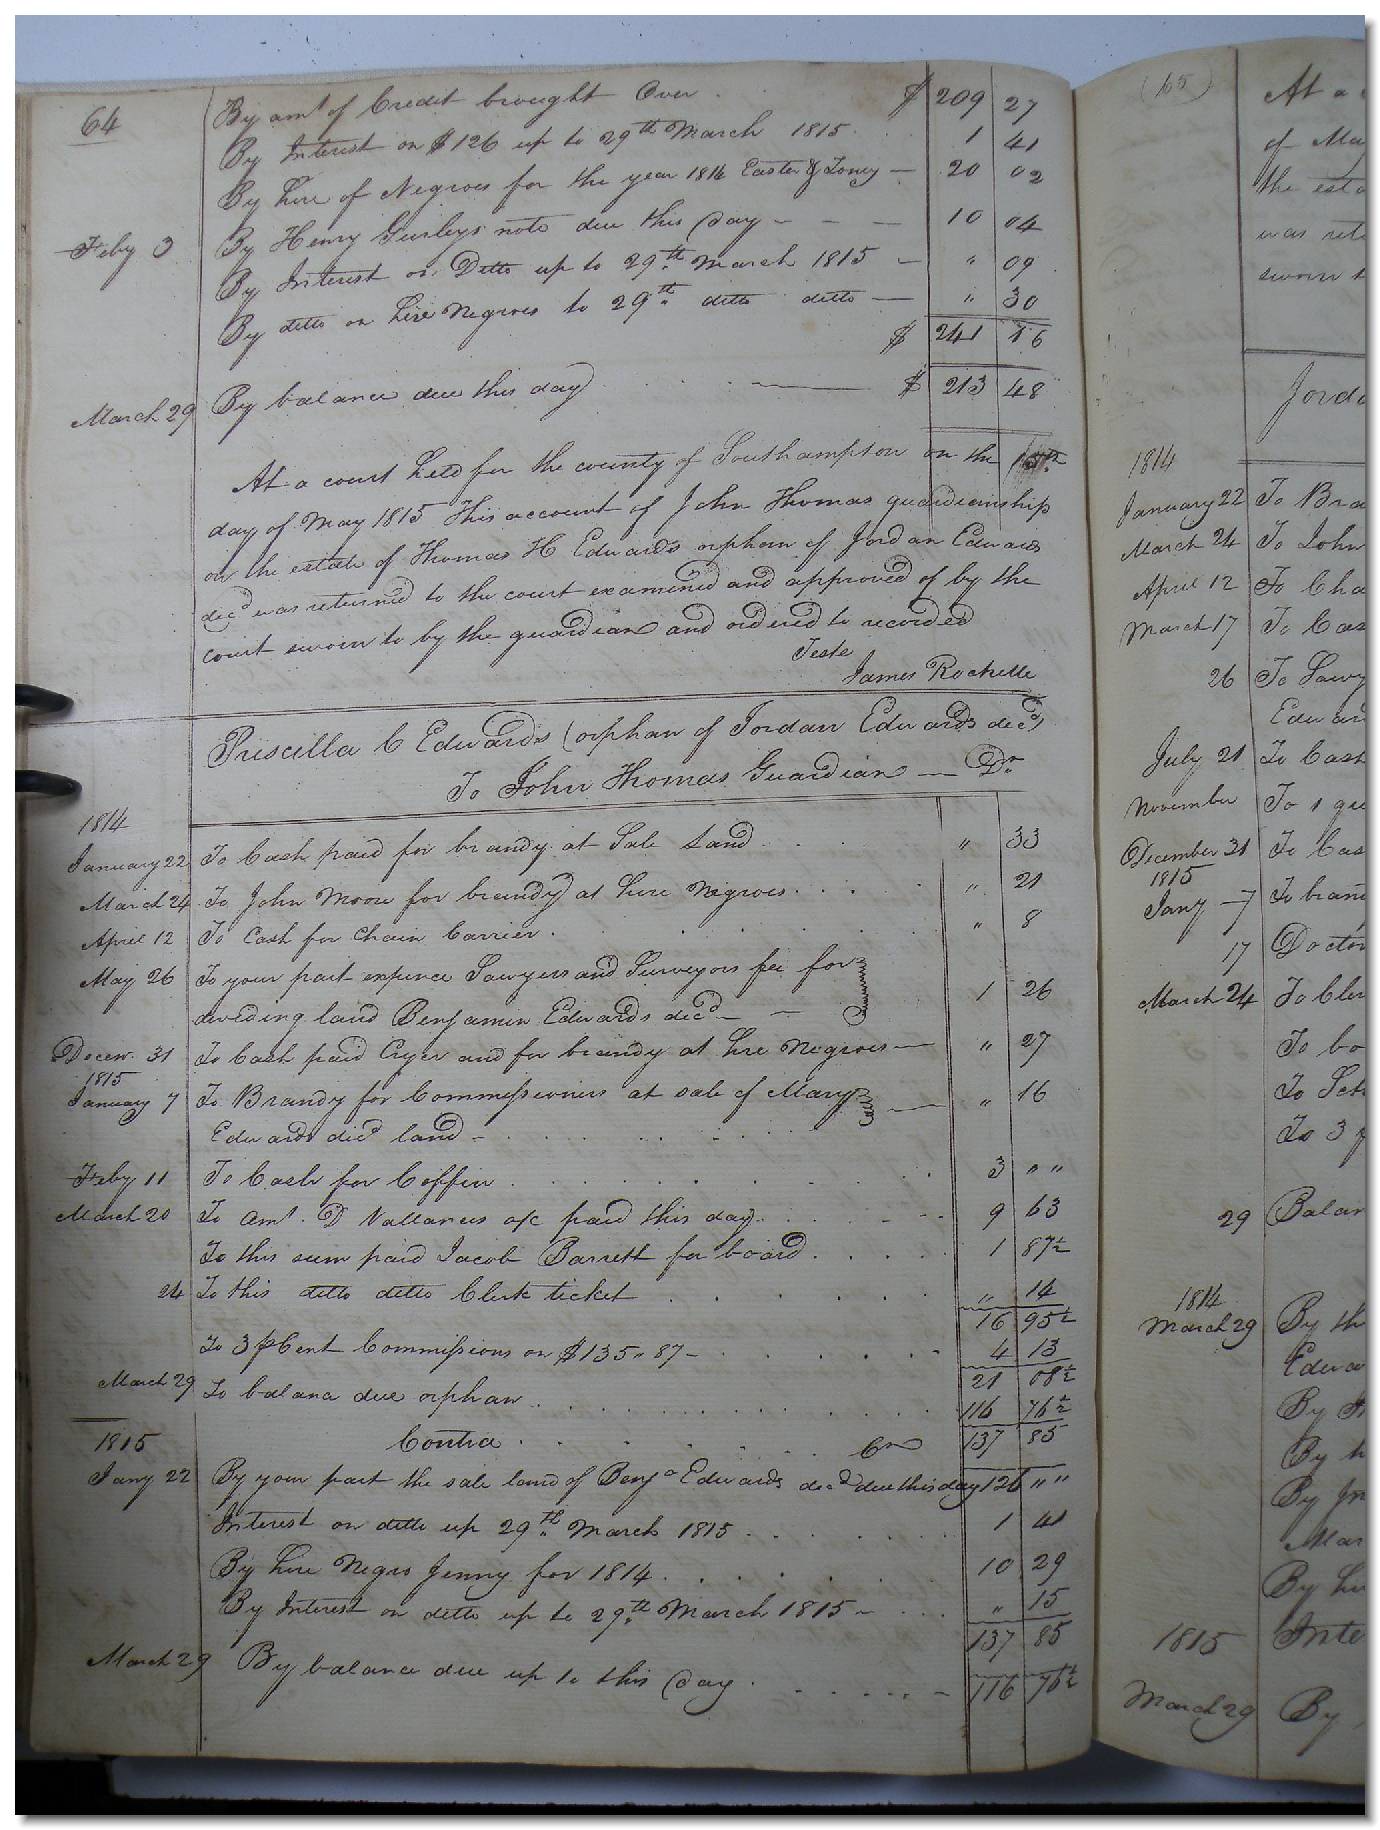 64
By amt of Credit brought Over $ 209 27
By Interest on $126 up to 29th March 1815 1 41
By hire of Negroes for the year 1814 Easter & Toney 20 02
Feby 3 By Henry Gurleys note due this day 10 04
By Interest on Ditto up to 29th March 1815 " 09
By ditto on hire Negroes to 29th ditto ditto " 30
$ 241 16
March 29 By balance due this day $ 213 48
At a court held for the county of Southampton on the 15th
day of May 1815 This account of John Thomas guardianship
on the estate of Thomas H Edwards orphan of Jordan Edwards
decd was returned to the court examined and approved of by the
court sworn to by the guardian and ordered to recorded
Teste
James Rochelle
Priscilla C Edwards (orphan of Jordan Edwards decd)
To John Thomas Guardian — Dr
1814
January 22 To Cash paid for brandy at Sale Land " 33
March 24 To John Moore for brandy at hire Negroes " 21
April 12 To Cash for Chain Carrier " 8
May 26 To your part expence Lawyers and Surveyors fee for
deviding land Benjamin Edwards decd 1 26
Decem. 31 To Cash paid Cryer and for brandy at hire Negroes " 27
1815
January 7 To Brandy for Commissioners at sale of Mary " 16
Edwards decd land
Feby 11 To Cash for Coffin 3 " "
March 20 To amt. D Vallances a/c paid this day 9 63
To this sum paid Jacob Barrett for board 1 87½
24 To this ditto ditto Clerk ticket " 14
16 95½
To 3 pCent Commissions on $135"87 4 13
21 08½
March 29 To balance due orphan 116 76½
Contra Cr 137 85
1815
Jany 22 By your part the sale land of Benja Edwards decd due this day 126 " "
Interest on ditto up 29th March 1815 1 41
By hire Negro Jenny for 1814 10 29
By Interest on ditto up to 29th March 1815 " 15
137 85
March 29 By balance due up to this day 116 76½
(65)
At a
of May
the esta
was retu
sworn t
Jorda
1814
January 22 To Bra
March 24 To John
April 12 To Cha
March 17 To Cas
26 To Lawy
Edwar
July 21 To Cash
November To 1 qu
December 31 To Cas
1815
Jany 7 To bran
17 Doctor
March 24 To Cler
To bo
To 3 p
29 Balan
1814
March 29 By th
Edwar
By
By h
By
Mar
By hi
1815 Inte
March 29 By